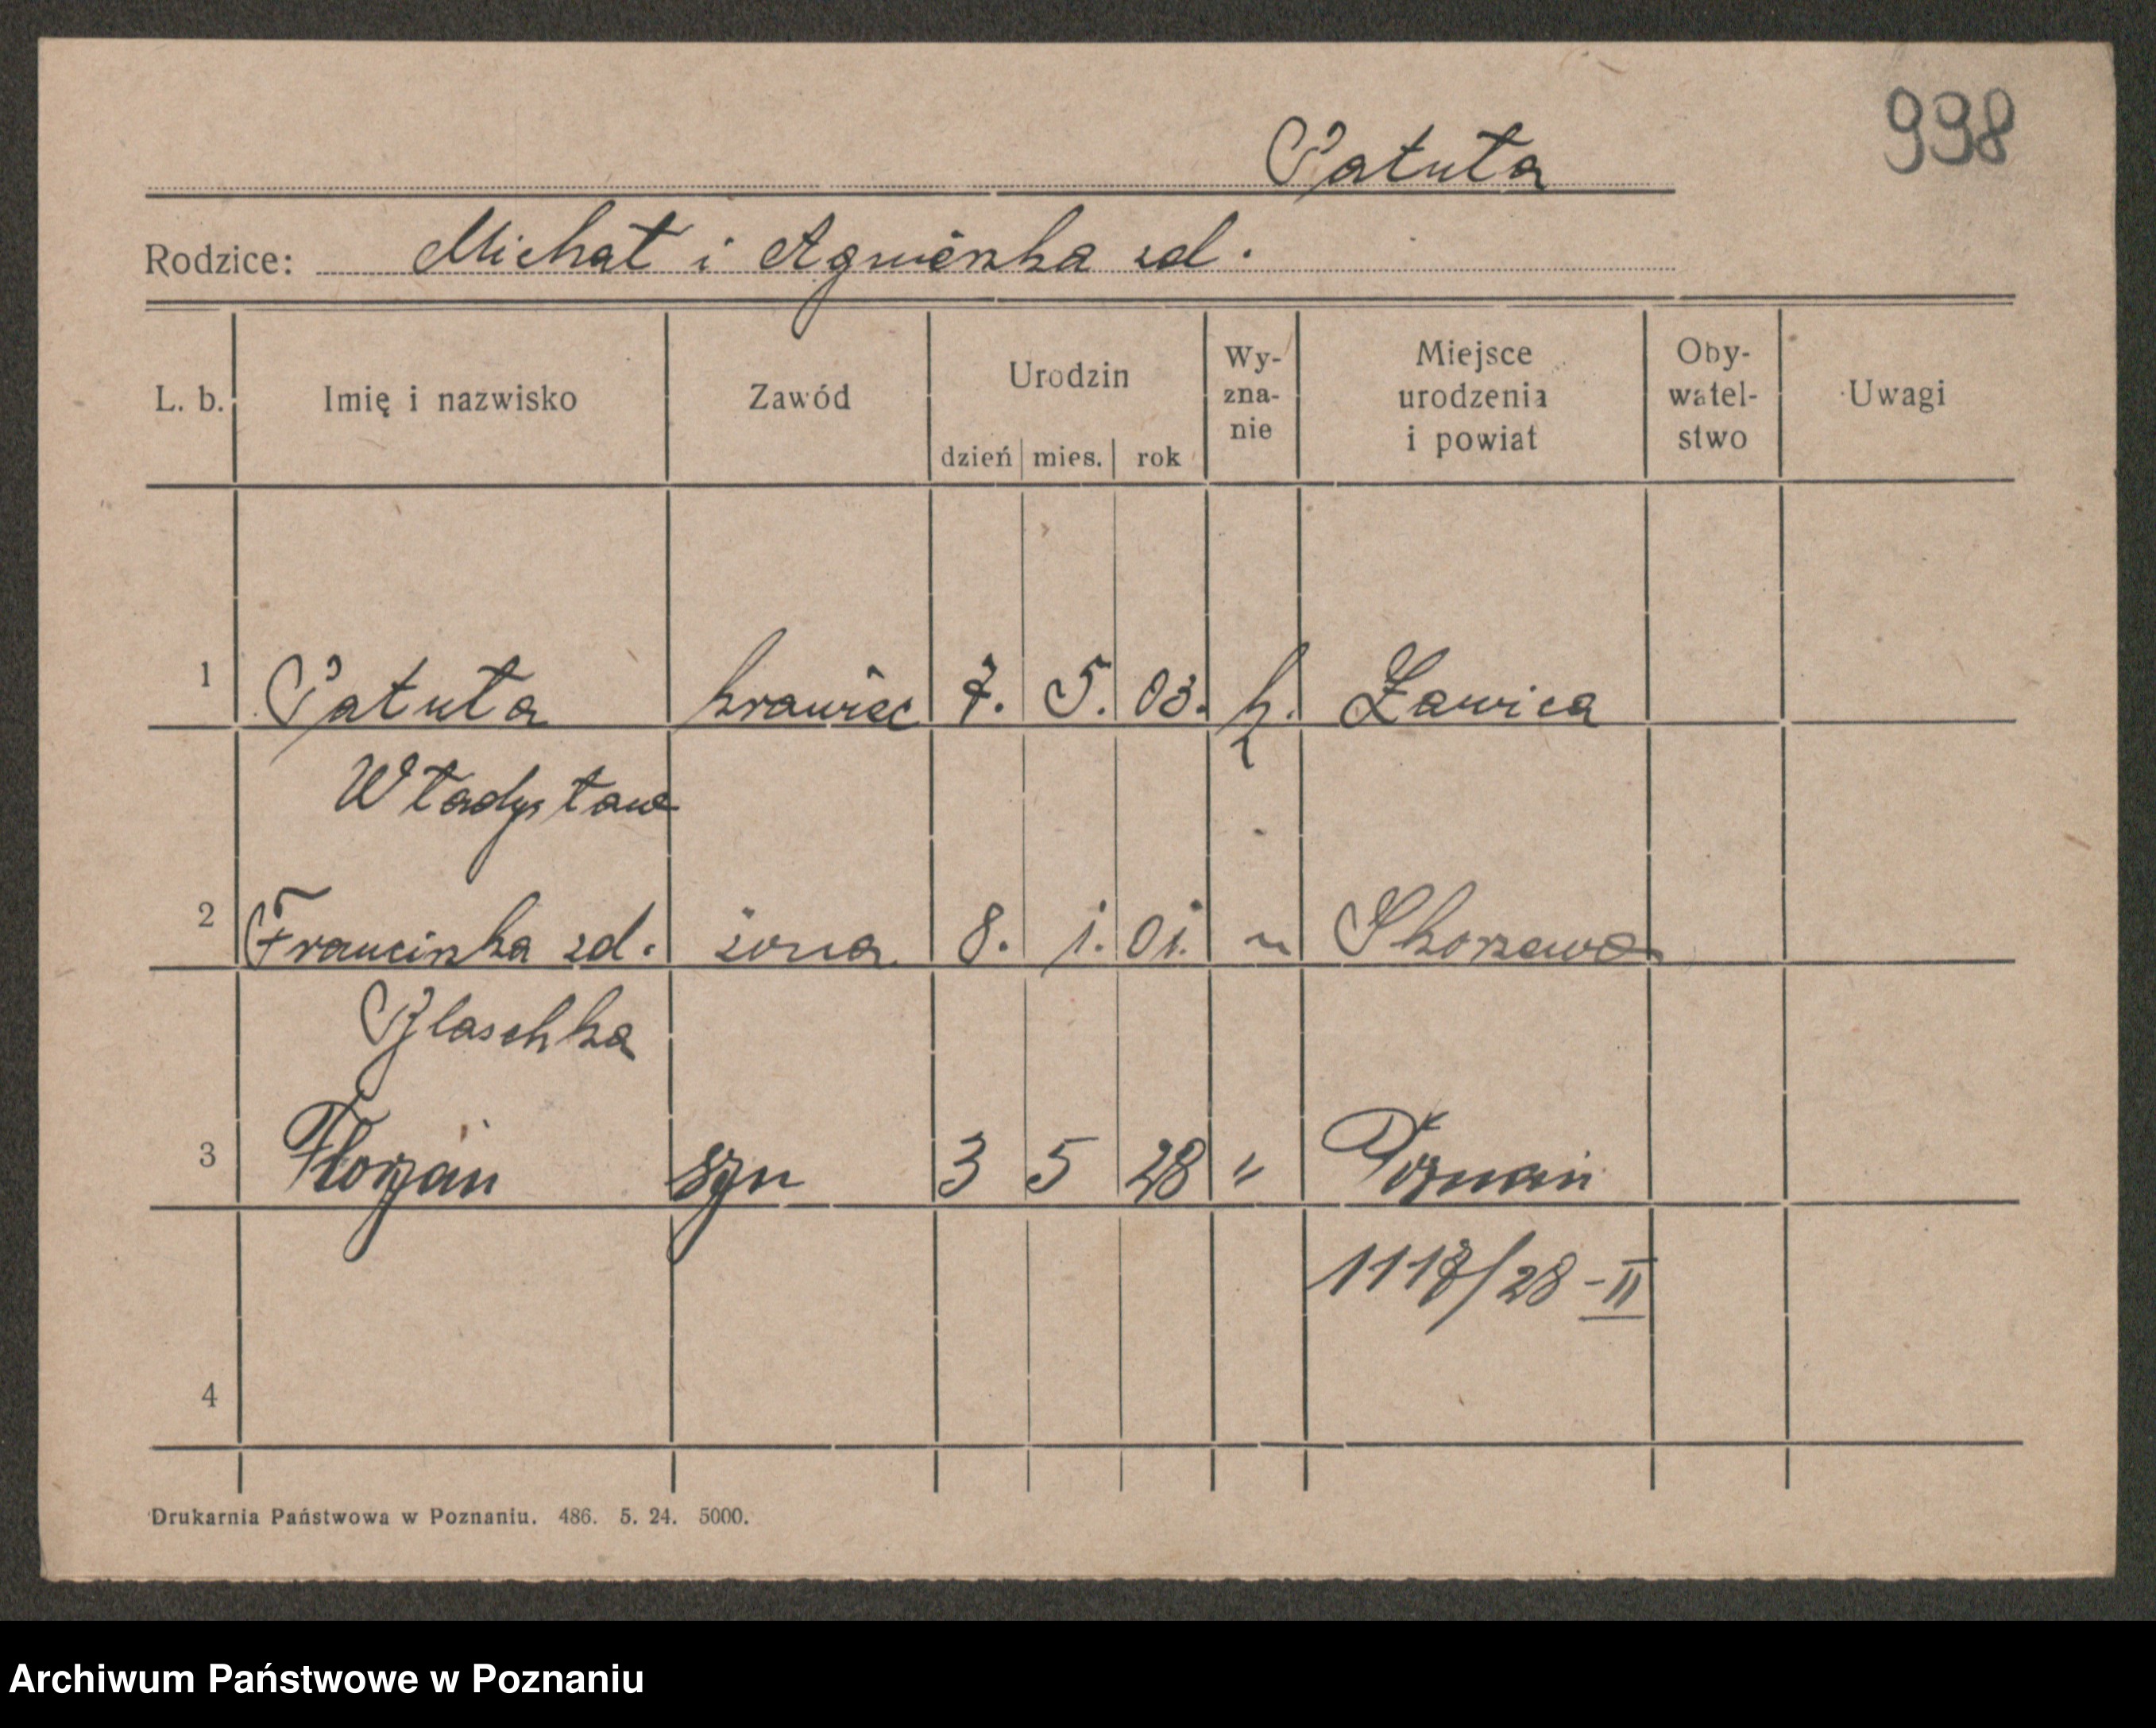 998
Patuła
Rodzice: Michał i Agnieszka zd.
L. b. Imię i nazwisko Zawód Urodzin dzień mies. rok Wy-zna-nie Miejsce urodzenia i powiat Oby-watel-stwo Uwagi
1 Patuła krawiec 7. 5. 03. k. Ławica
Władysław
2 Franciszka zd. żona 8. 1. 01. " Skorzewo
Blaschka
3 Florjan syn 3 5 28 " Poznań
1117/28 - II
4
Drukarnia Państwowa w Poznaniu. 486. 5. 24. 5000.
Archiwum Państwowe w Poznaniu